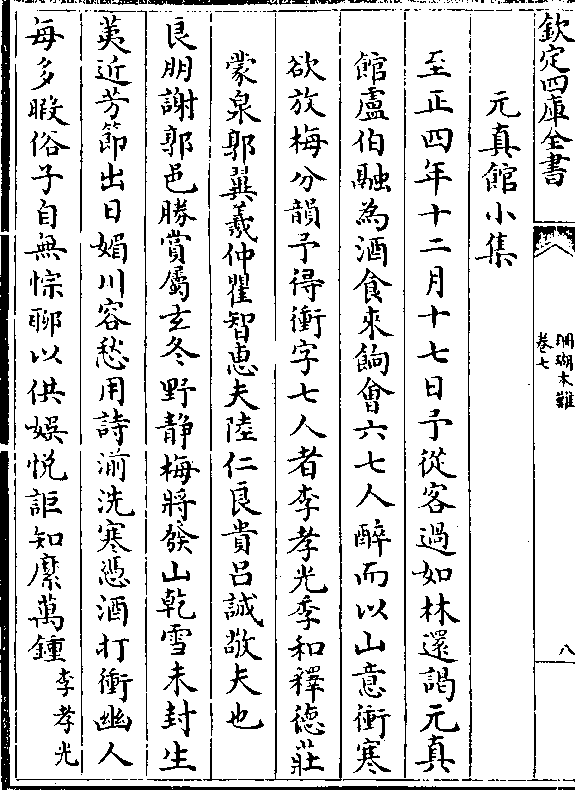 欽定四庫全書
珊瑚木難
卷七
八
元真館小集
至正四年十二月十七日予從客過如林還謁元真
館盧伯融為酒食來餉會六七人醉而以山意衝寒
欲放梅分韻予得衝字七人者李孝光季和釋德莊
蒙泉郭翼羲仲瞿智惠夫陸仁良貴呂誠敬夫也
良朋謝郭邑勝賞屬玄冬野静梅將發山乾雪未封生
荑近芳節出日媚川容愁用詩湔洗寒憑酒打衝幽人
每多暇俗子自無悰聊以供娯悦詎知縻萬鍾李孝光